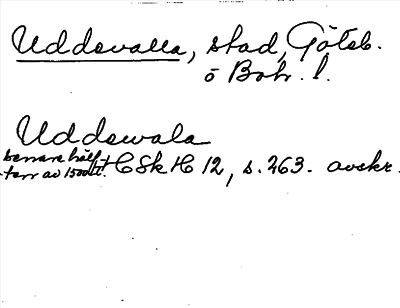 Uddevalla, stad, Göteb.
o Boh. l.
Uddewala
senare hälf-
ten av 1500 t. HSkH 12, s. 263. avskr.